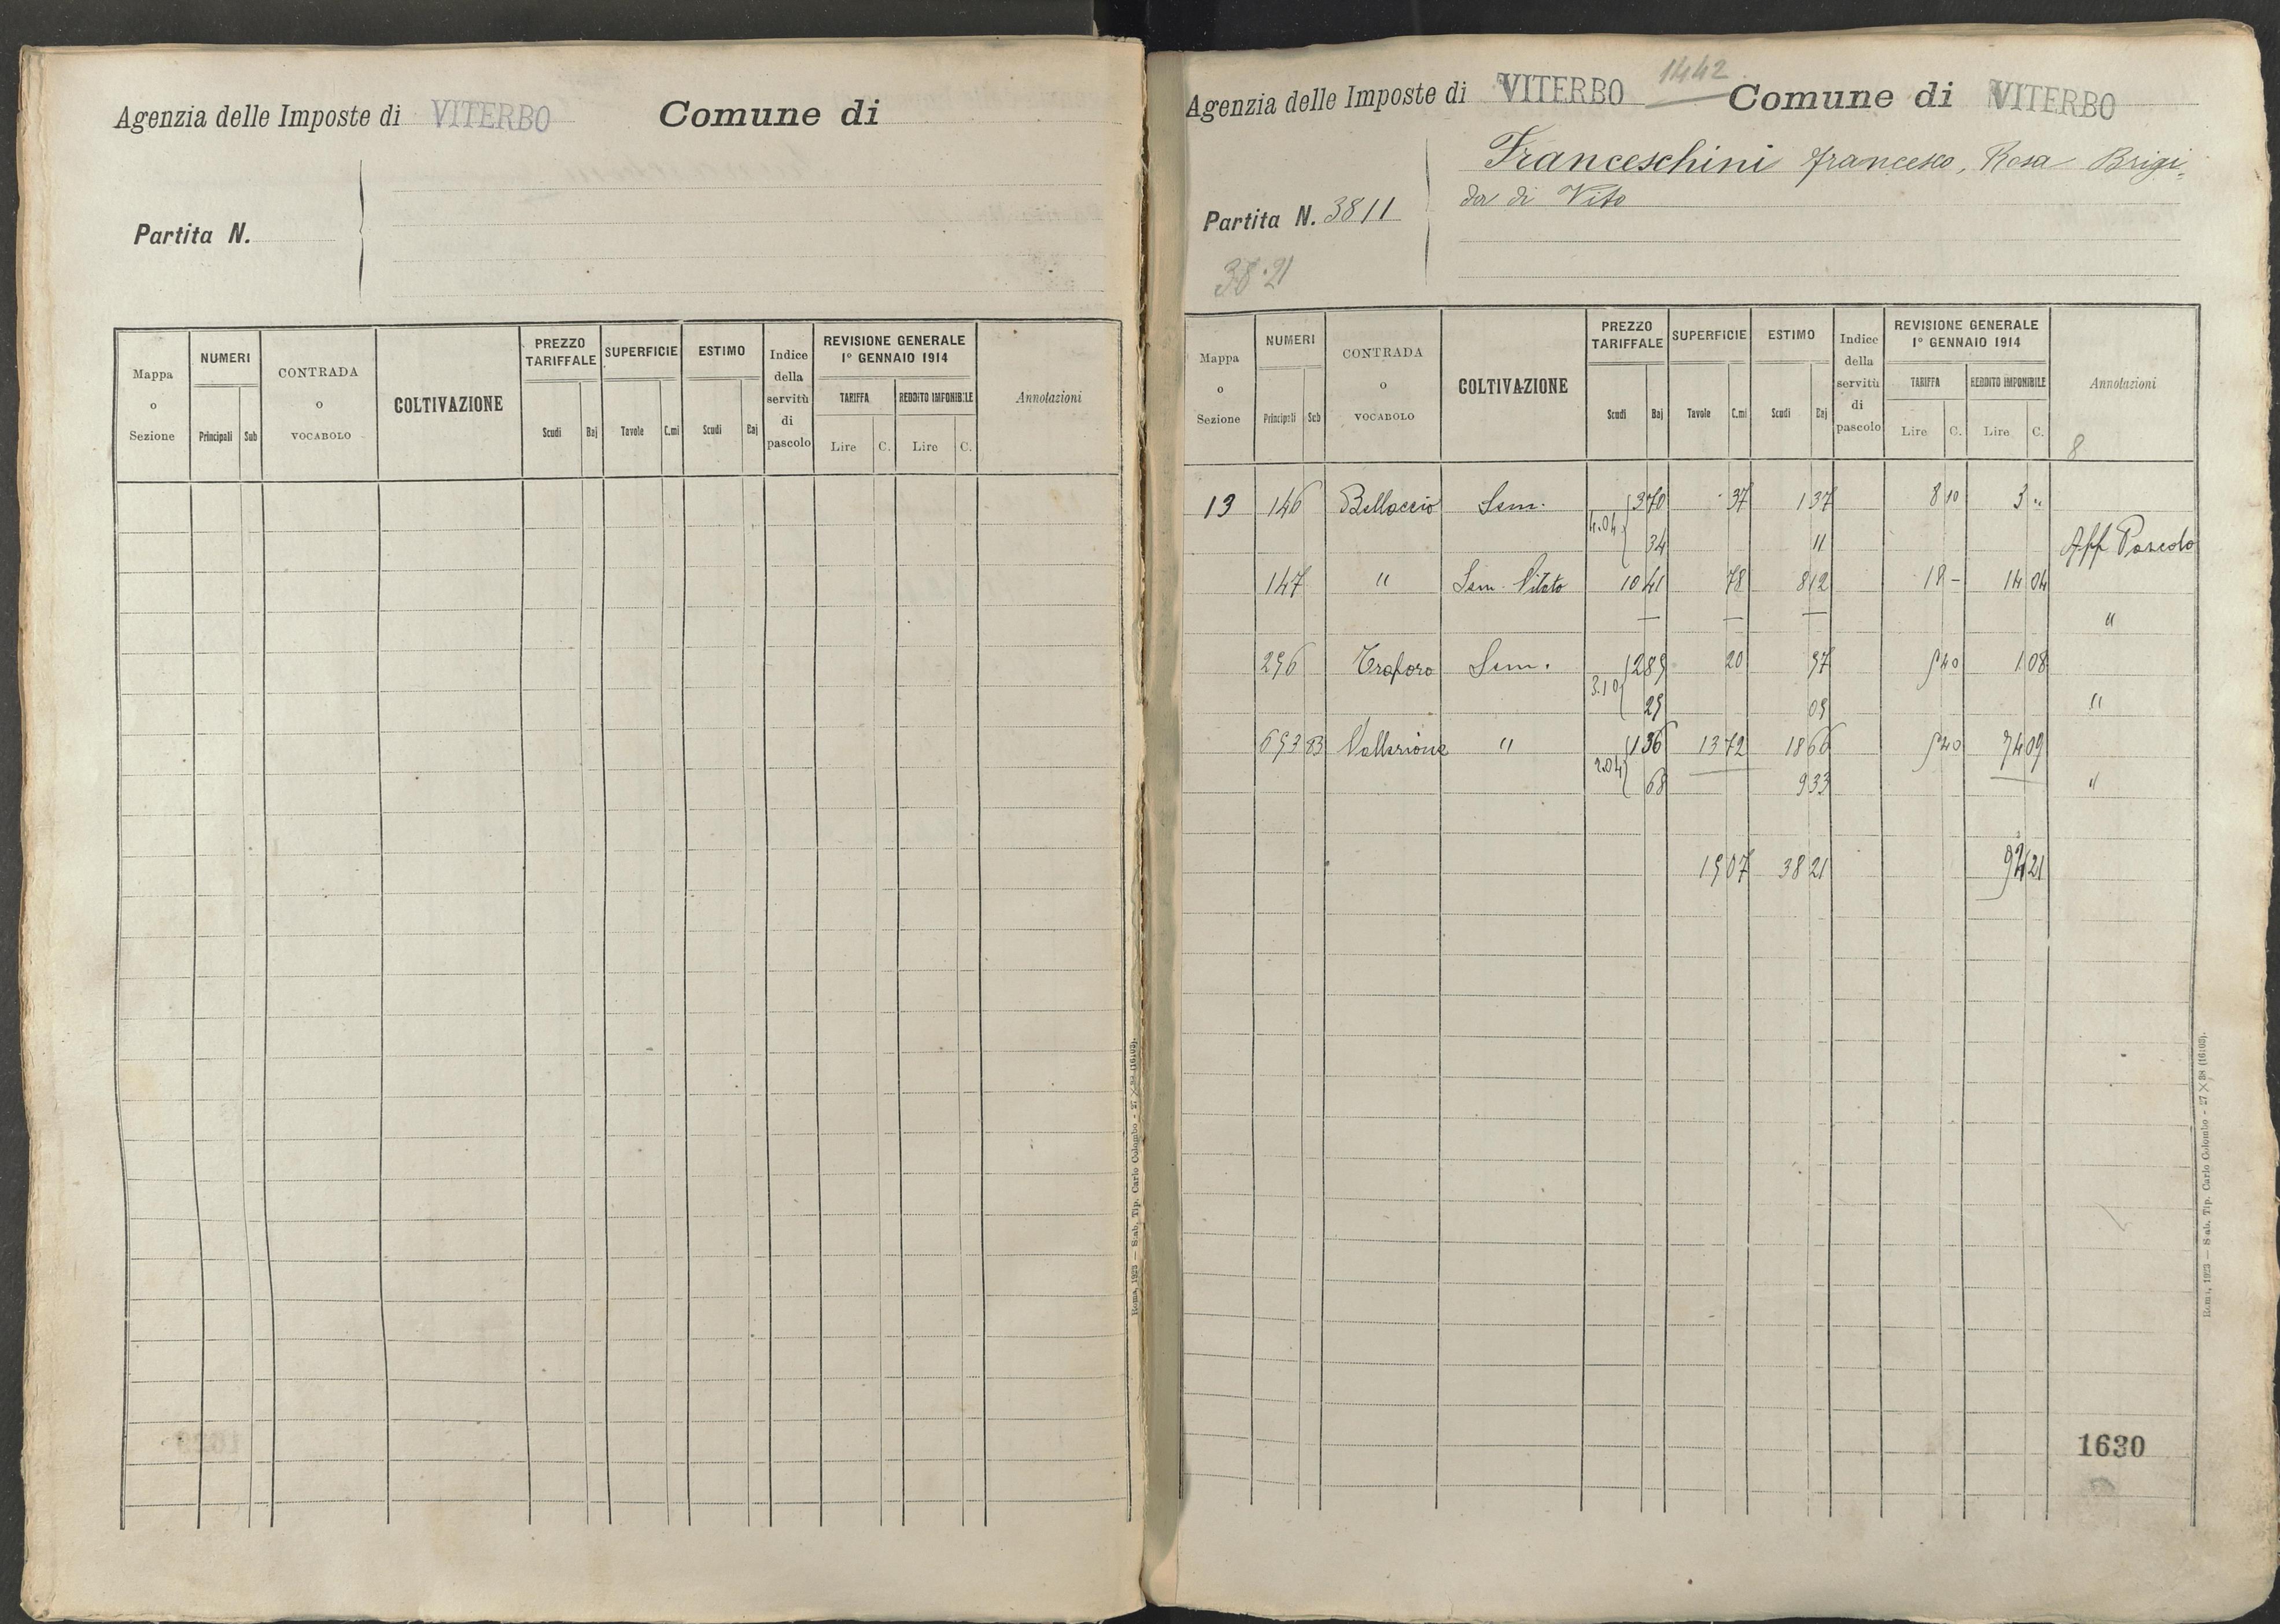 Agenzia delle Imposte di VITERBO Comune di
Partita N.
Mappa o Sezione | NUMERI Principali Sub | CONTRADA o VOCABOLO | COLTIVAZIONE | PREZZO TARIFFALE Scudi Baj | SUPERFICIE Tavole C.mi | ESTIMO Scudi Baj | Indice della servitù di pascolo | REVISIONE GENERALE 1° GENNAIO 1914 TARIFFA Lire C. REDDITO IMPONIBILE Lire C. | Annotazioni
Roma, 1923 — Stab. Tip. Carlo Colombo - 27 × 38 (16103).
1442
Agenzia delle Imposte di VITERBO Comune di VITERBO
Franceschini Francesco, Rosa Brigi-
da di Vito
Partita N. 3811
38.21
Mappa o Sezione | NUMERI Principali Sub | CONTRADA o VOCABOLO | COLTIVAZIONE | PREZZO TARIFFALE Scudi Baj | SUPERFICIE Tavole C.mi | ESTIMO Scudi Baj | Indice della servitù di pascolo | REVISIONE GENERALE 1° GENNAIO 1914 TARIFFA Lire C. REDDITO IMPONIBILE Lire C. | Annotazioni
8
13 146 Bellaccio Sem. 3 70 37 1 37 8 10 3 "
4.04 34 11 Aff Pascolo
147 " Sem. Vitato 10 41 78 8 12 18 - 14 04
— — — "
296 Troforo Sem. 2 89 20 57 5 40 1 08
3.10 29 05 "
693 83 Vallerione " 1 36 13 72 18 66 5 40 74 09
2.04 68 9 33 "
15 07 38 21 92 21
1630
Roma, 1923 — Stab. Tip. Carlo Colombo - 27 × 38 (16103).